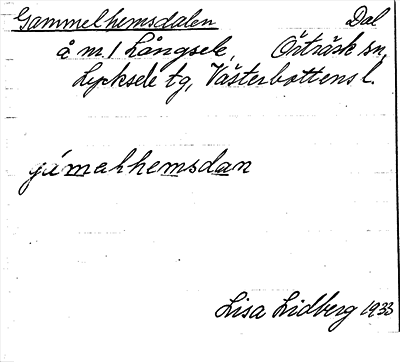 Gammelhemsdalen Dal
å m/ Långsele, Örträsk sn,
Lycksele tg, Västerbottens l.
gámalhemsdan
Lisa Lidberg 1933